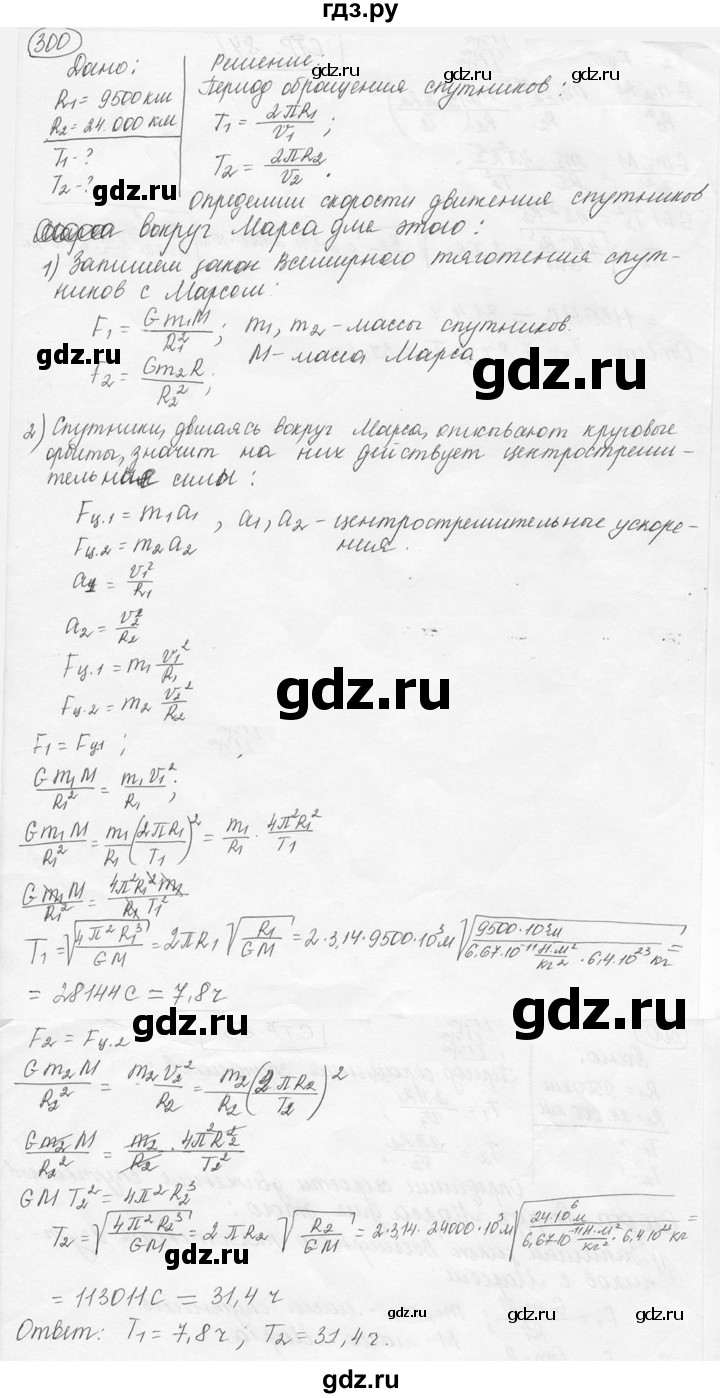 гдз.ру
300
Дано:
R₁ = 9500 км
R₂ = 24.000 км
T₁ - ?
T₂ - ?
Решение:
Период обращения спутников:
T₁ = 2πR₁/v₁;
T₂ = 2πR₂/v₂.
Определим скорости движения спутников
вокруг Марса для этого:
1) Запишем закон Всемирного тяготения спут-
ников с Марсом:
F₁ = Gm₁M/R₁²; m₁, m₂ - массы спутников.
M - масса Марса
F₂ = Gm₂R/R₂²;
2) Спутники, двигаясь вокруг Марса, описывают круговые
орбиты, значит на них действует центростреми-
тельная силы:
Fц.1 = m₁a₁, a₁, a₂ - центростремительные ускоре-
Fц.2 = m₂a₂ ния.
a₁ = v₁²/R₁
a₂ = v₂²/R₂
Fц.1 = m₁ v₁²/R₁
Fц.2 = m₂ v₂²/R₂
F₁ = Fц1;
Gm₁M/R₁² = m₁v₁²;
Gm₁M/R₁² = m₁/R₁ (2πR₁/T₁)² = m₁/R₁ · 4π²R₁²/T₁
Gm₁M/R₁² = 4π²R₁²m₂/R₁T₁²
T₁ = √(4π²R₁³/GM) = 2πR₁ √(R₁/GM) = 2·3,14·9500·10³м √(9500·10³м/(6,67·10⁻¹¹ Н·м²/кг² · 6,4·10²³кг)) =
= 28144 с = 7,8 ч
F₂ = Fц.2
Gm₂M/R₂² = m₂v₂²/R₂ = m₂/R₂ (2πR₂/T₂)²
Gm₂M/R₂² = m₂/R₂ · 4π²R₂²/T₂²
GMT₂² = 4π²R₂³
T₂ = √(4π²R₂³/GM) = 2πR₂ √(R₂/GM) = 2·3,14·24000·10³м √(24·10⁶м/(6,67·10⁻¹¹ Н·м²/кг² · 6,4·10²³кг)) =
= 113011 с = 31,4 ч
Ответ: T₁ = 7,8 ч; T₂ = 31,4 ч.
gdz.ru